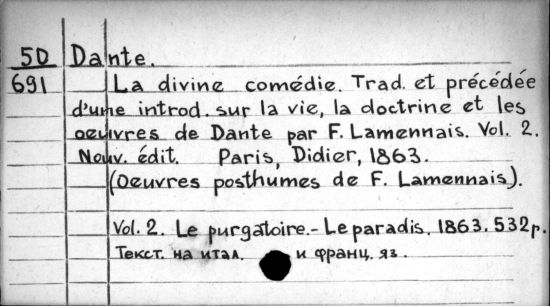 50 Dante.
691 La divine comédie. Trad. et précédée
d'une introd. sur la vie, la doctrine et les
oeuvres de Dante par F. Lamennais. Vol. 2.
Nouv. édit. Paris, Didier, 1863.
(Oeuvres posthumes de F. Lamennais).
Vol. 2. Le purgatoire.- Le paradis. 1863. 532 p.
Текст. на итал. и франц. яз.